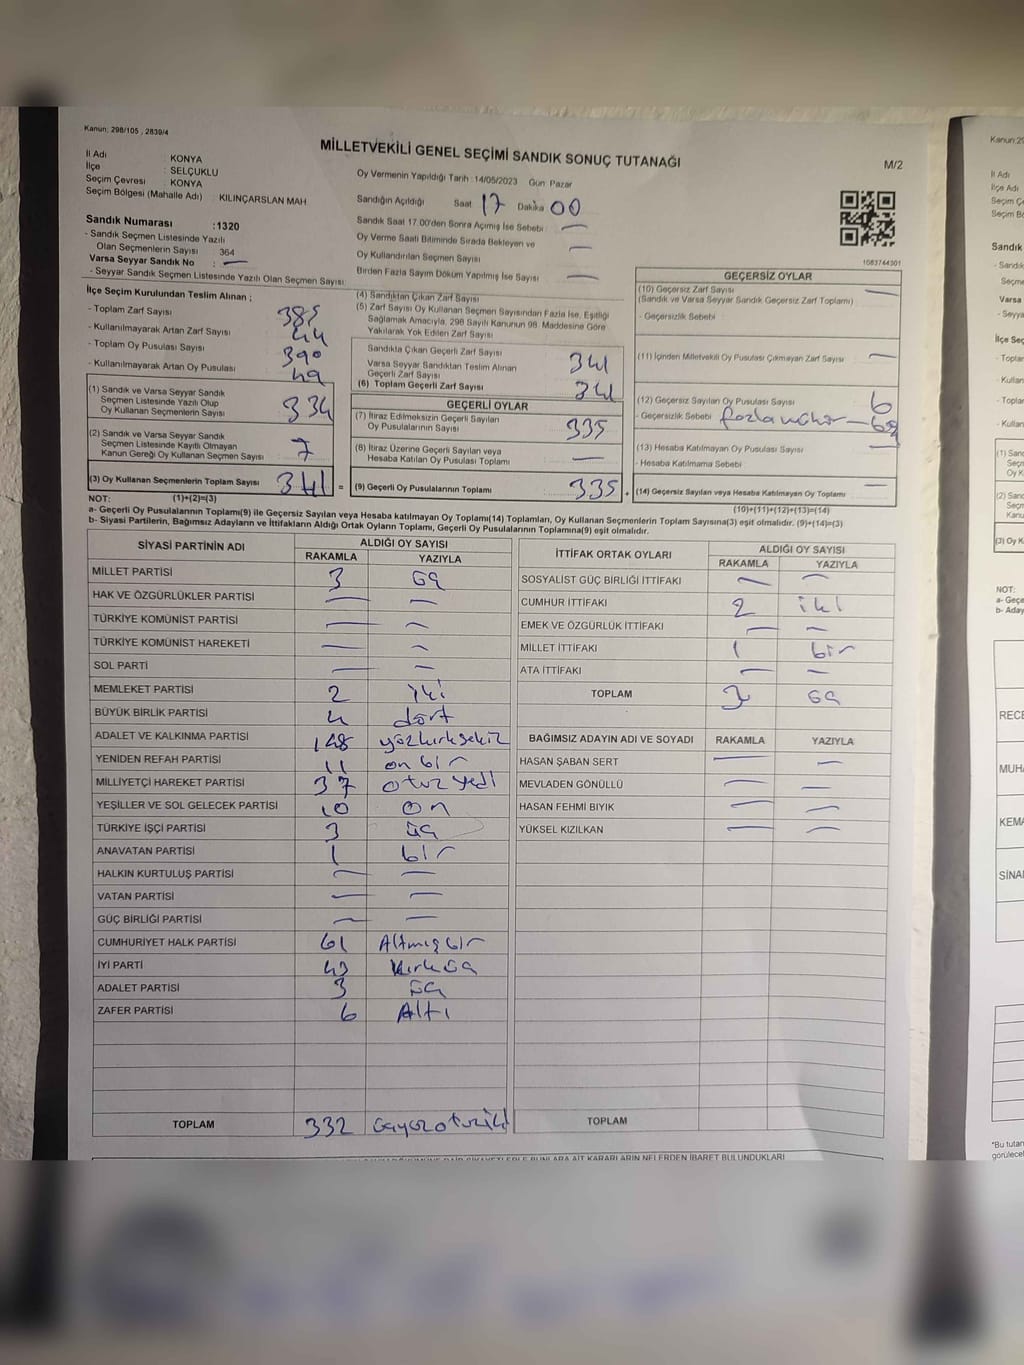 Kanun; 298/105 , 2839/4
MİLLETVEKİLİ GENEL SEÇİMİ SANDIK SONUÇ TUTANAĞI
M/2
İl Adı : KONYA
İlçe : SELÇUKLU
Seçim Çevresi : KONYA
Seçim Bölgesi (Mahalle Adı) : KILINÇARSLAN MAH
Sandık Numarası : 1320
- Sandık Seçmen Listesinde Yazılı
Olan Seçmenlerin Sayısı 364
Varsa Seyyar Sandık No : —
- Seyyar Sandık Seçmen Listesinde Yazılı Olan Seçmen Sayısı:
Oy Vermenin Yapıldığı Tarih : 14/05/2023 Gün Pazar
Sandığın Açıldığı Saat 17 Dakika 00
Sandık Saat 17.00'den Sonra Açımış İse Sebebi : —
Oy Verme Saati Bitiminde Sırada Bekleyen ve —
Oy Kullandırılan Seçmen Sayısı
Birden Fazla Sayım Döküm Yapılmış İse Sayısı —
1083744301
İlçe Seçim Kurulundan Teslim Alınan ;
- Toplam Zarf Sayısı 385
- Kullanılmayarak Artan Zarf Sayısı 44
- Toplam Oy Pusulası Sayısı 390
- Kullanılmayarak Artan Oy Pusulası 49
(1) Sandık ve Varsa Seyyar Sandık
Seçmen Listesinde Yazılı Olup
Oy Kullanan Seçmenlerin Sayısı 334
(2) Sandık ve Varsa Seyyar Sandık
Seçmen Listesinde Kayıtlı Olmayan
Kanun Gereği Oy Kullanan Seçmen Sayısı 7
(3) Oy Kullanan Seçmenlerin Toplam Sayısı 341 =
(4) Sandıktan Çıkan Zarf Sayısı
(5) Zarf Sayısı Oy Kullanan Seçmen Sayısından Fazla İse, Eşitliği
Sağlamak Amacıyla, 298 Sayılı Kanunun 98. Maddesine Göre
Yakılarak Yok Edilen Zarf Sayısı
Sandıkta Çıkan Geçerli Zarf Sayısı 341
Varsa Seyyar Sandıktan Teslim Alınan
Geçerli Zarf Sayısı
(6) Toplam Geçerli Zarf Sayısı 341
GEÇERLİ OYLAR
(7) İtiraz Edilmeksizin Geçerli Sayılan
Oy Pusulalarının Sayısı 335
(8) İtiraz Üzerine Geçerli Sayılan veya
Hesaba Katılan Oy Pusulası Toplamı —
(9) Geçerli Oy Pusulalarının Toplamı 335 +
GEÇERSİZ OYLAR
(10) Geçersiz Zarf Sayısı —
(Sandık ve Varsa Seyyar Sandık Geçersiz Zarf Toplamı)
- Geçersizlik Sebebi :
(11) İçinden Milletvekili Oy Pusulası Çıkmayan Zarf Sayısı —
(12) Geçersiz Sayılan Oy Pusulası Sayısı 6
- Geçersizlik Sebebi
(13) Hesaba Katılmayan Oy Pusulası Sayısı —
- Hesaba Katılmama Sebebi
(14) Geçersiz Sayılan veya Hesaba Katılmayan Oy Toplamı —
NOT: (1)+(2)=(3) (10)+(11)+(12)+(13)=(14)
a- Geçerli Oy Pusulalarının Toplamı(9) ile Geçersiz Sayılan veya Hesaba katılmayan Oy Toplamı(14) Toplamları, Oy Kullanan Seçmenlerin Toplam Sayısına(3) eşit olmalıdır. (9)+(14)=(3)
b- Siyasi Partilerin, Bağımsız Adayların ve İttifakların Aldığı Ortak Oyların Toplamı, Geçerli Oy Pusulalarının Toplamına(9) eşit olmalıdır.
SİYASİ PARTİNİN ADI ALDIĞI OY SAYISI
RAKAMLA YAZIYLA
MİLLET PARTİSİ 3 üç
HAK VE ÖZGÜRLÜKLER PARTİSİ — —
TÜRKİYE KOMÜNİST PARTİSİ — —
TÜRKİYE KOMÜNİST HAREKETİ — —
SOL PARTİ — —
MEMLEKET PARTİSİ 2 iki
BÜYÜK BİRLİK PARTİSİ 4 dört
ADALET VE KALKINMA PARTİSİ 148 yüzkırksekiz
YENİDEN REFAH PARTİSİ 11 on bir
MİLLİYETÇİ HAREKET PARTİSİ 37 otuz yedi
YEŞİLLER VE SOL GELECEK PARTİSİ 10 on
TÜRKİYE İŞÇİ PARTİSİ 3 üç
ANAVATAN PARTİSİ 1 bir
HALKIN KURTULUŞ PARTİSİ — —
VATAN PARTİSİ — —
GÜÇ BİRLİĞİ PARTİSİ — —
CUMHURİYET HALK PARTİSİ 61 Altmışbir
İYİ PARTİ 43 kırküç
ADALET PARTİSİ 3 üç
ZAFER PARTİSİ 6 Altı
TOPLAM 332 üçyüzotuziki
İTTİFAK ORTAK OYLARI ALDIĞI OY SAYISI
RAKAMLA YAZIYLA
SOSYALİST GÜÇ BİRLİĞİ İTTİFAKI — —
CUMHUR İTTİFAKI 2 iki
EMEK VE ÖZGÜRLÜK İTTİFAKI — —
MİLLET İTTİFAKI 1 bir
ATA İTTİFAKI — —
TOPLAM 3 üç
BAĞIMSIZ ADAYIN ADI VE SOYADI RAKAMLA YAZIYLA
HASAN ŞABAN SERT — —
MEVLADEN GÖNÜLLÜ — —
HASAN FEHMİ BIYIK — —
YÜKSEL KIZILKAN — —
TOPLAM